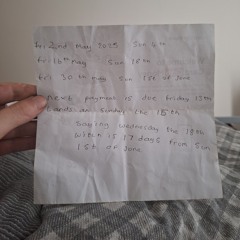 Fri 2nd May 2025 Sun 4th
Fri 16th May Sun 18th
Fri 30th May Sun 1st of June
Next payment is due Friday 13th
ends on Sunday the 15th
Saying Wednesday the 18th
witch is 17 days from Sun
1st of June